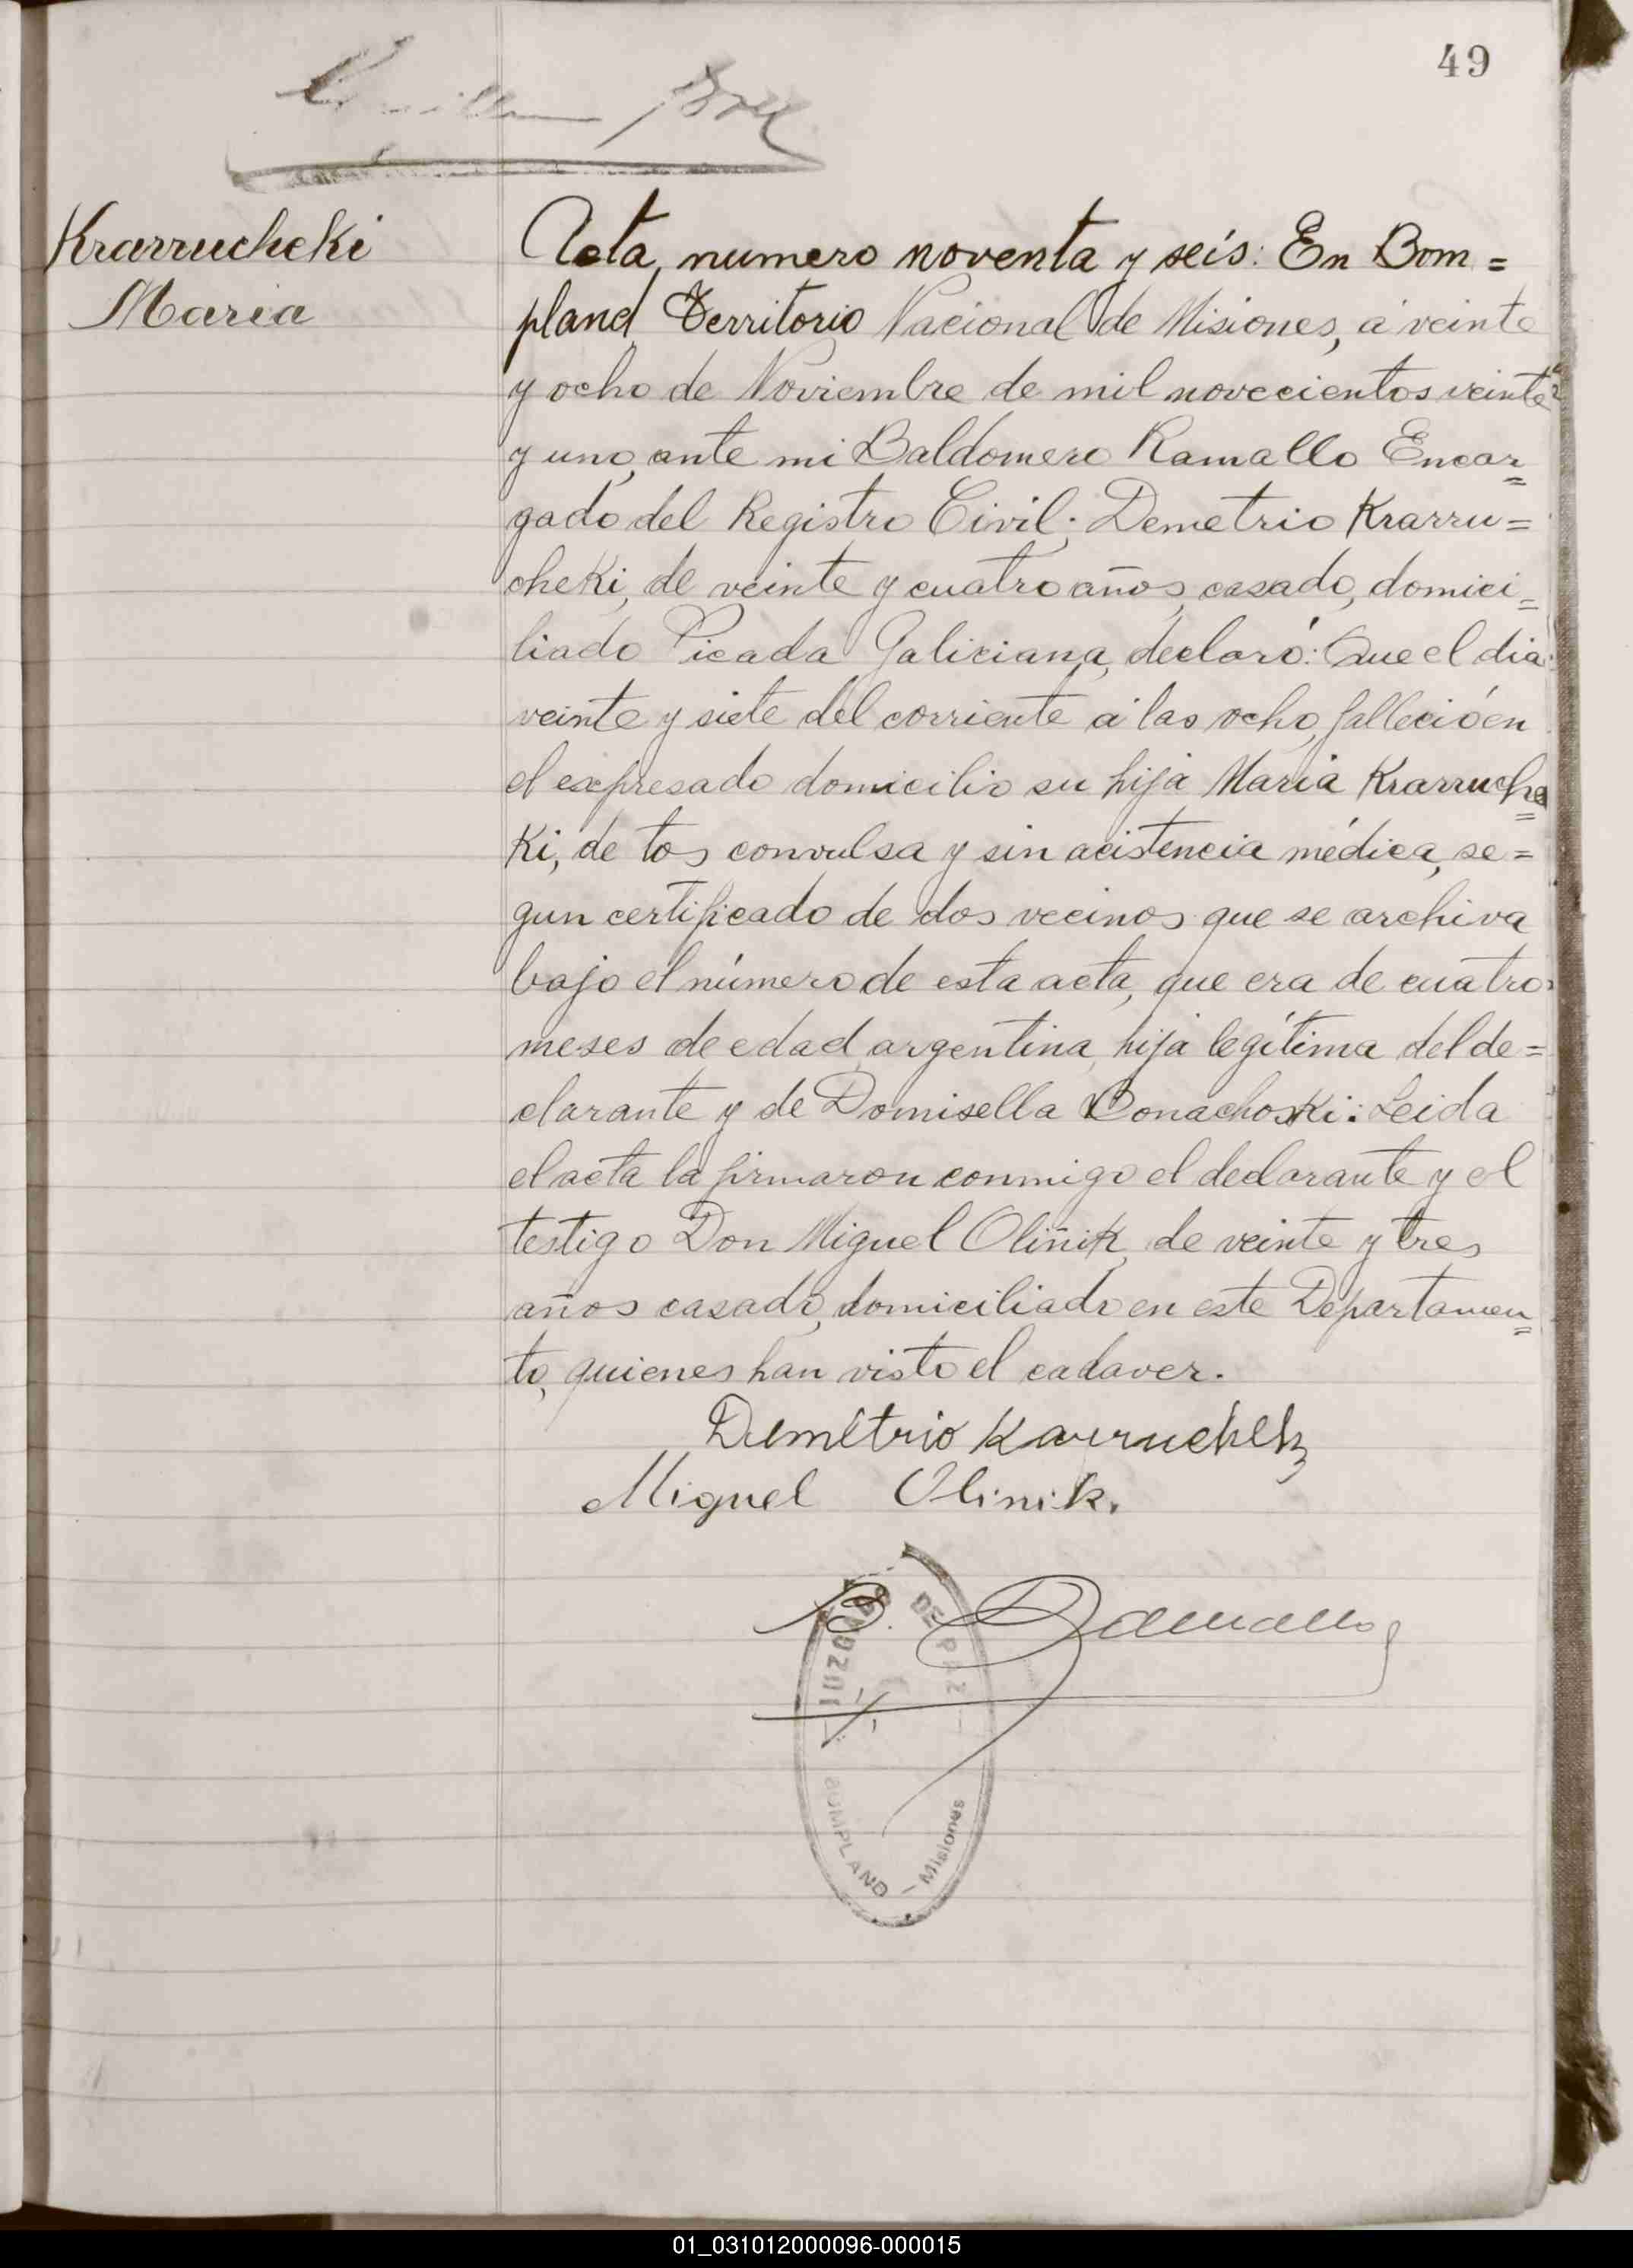 49
Krarrucheki
Maria
Acta numero noventa y seis: En Bom=
pland Territorio Nacional de Misiones, á veinte
y ocho de Noviembre de mil novecientos veinte
y uno, ante mi Baldomero Ramallo Encar=
gado del Registro Civil; Demetrio Krarru=
cheki, de veinte y cuatro años, casado, domici=
liado Picada Galiciana, declaró: Que el dia
veinte y siete del corriente á las ocho, falleció en
el expresado domicilio su hija Maria Krarruche=
ki, de tos convulsa y sin acistencia médica, se=
gun certificado de dos vecinos que se archiva
bajo el número de esta acta, que era de cuatro
meses de edad, argentina, hija legítima del de=
clarante y de Domisella Bonachoski: Leida
el acta la firmaron conmigo el declarante y el
testigo Don Miguel Oliñik, de veinte y tres
años casado, domiciliado en este Departamen=
to, quienes han visto el cadaver.
Demetrio
Miguel Olinik.
B. Ramallo
JUZGADO DE PAZ
BOMPLAND - Misiones
01_031012000096-000015